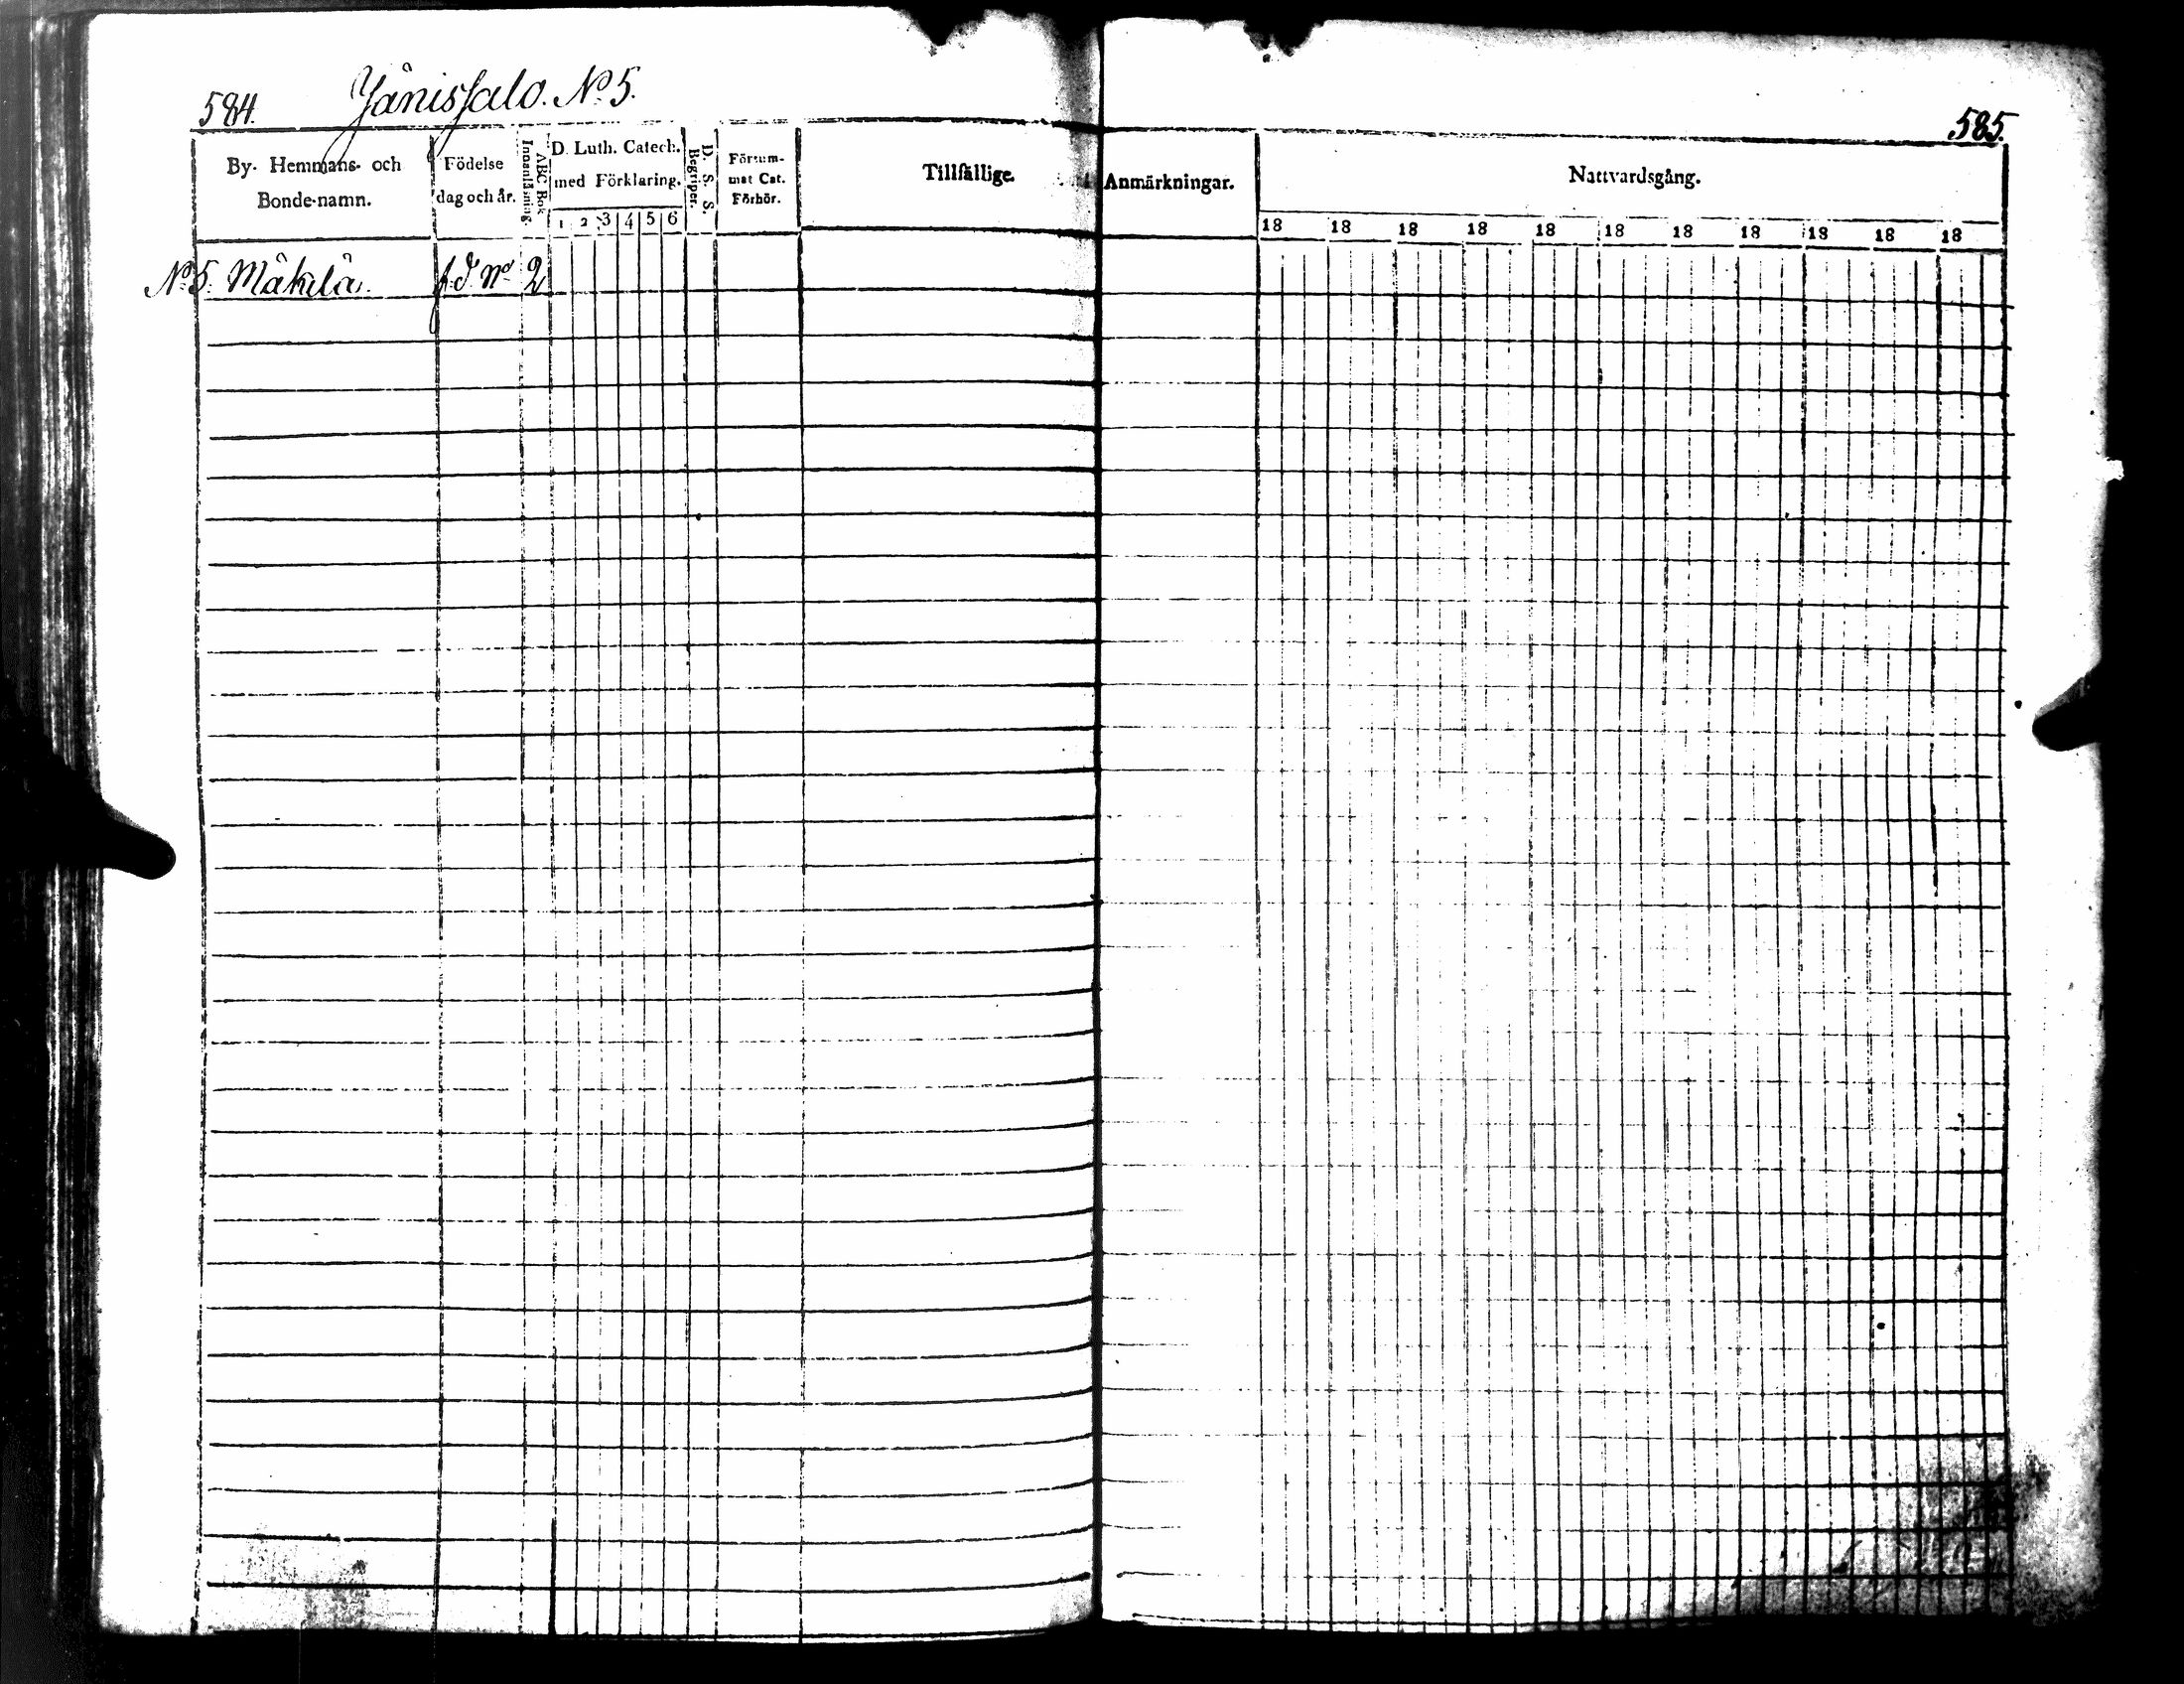 584. Jänissalo. No 5.
585.
By- Hemmans- och Bonde-namn.
Födelse dag och år.
ABC Bok Innanläsning.
D. Luth. Catech. med Förklaring.
1 2 3 4 5 6
D. S. S. Begriper.
Försum- mat Cat. Förhör.
Tillfällige Anmärkningar.
Nattvardsgång.
18 18 18 18 18 18 18 18 18 18 18
No 5. Mäkilä. f.d. No 2